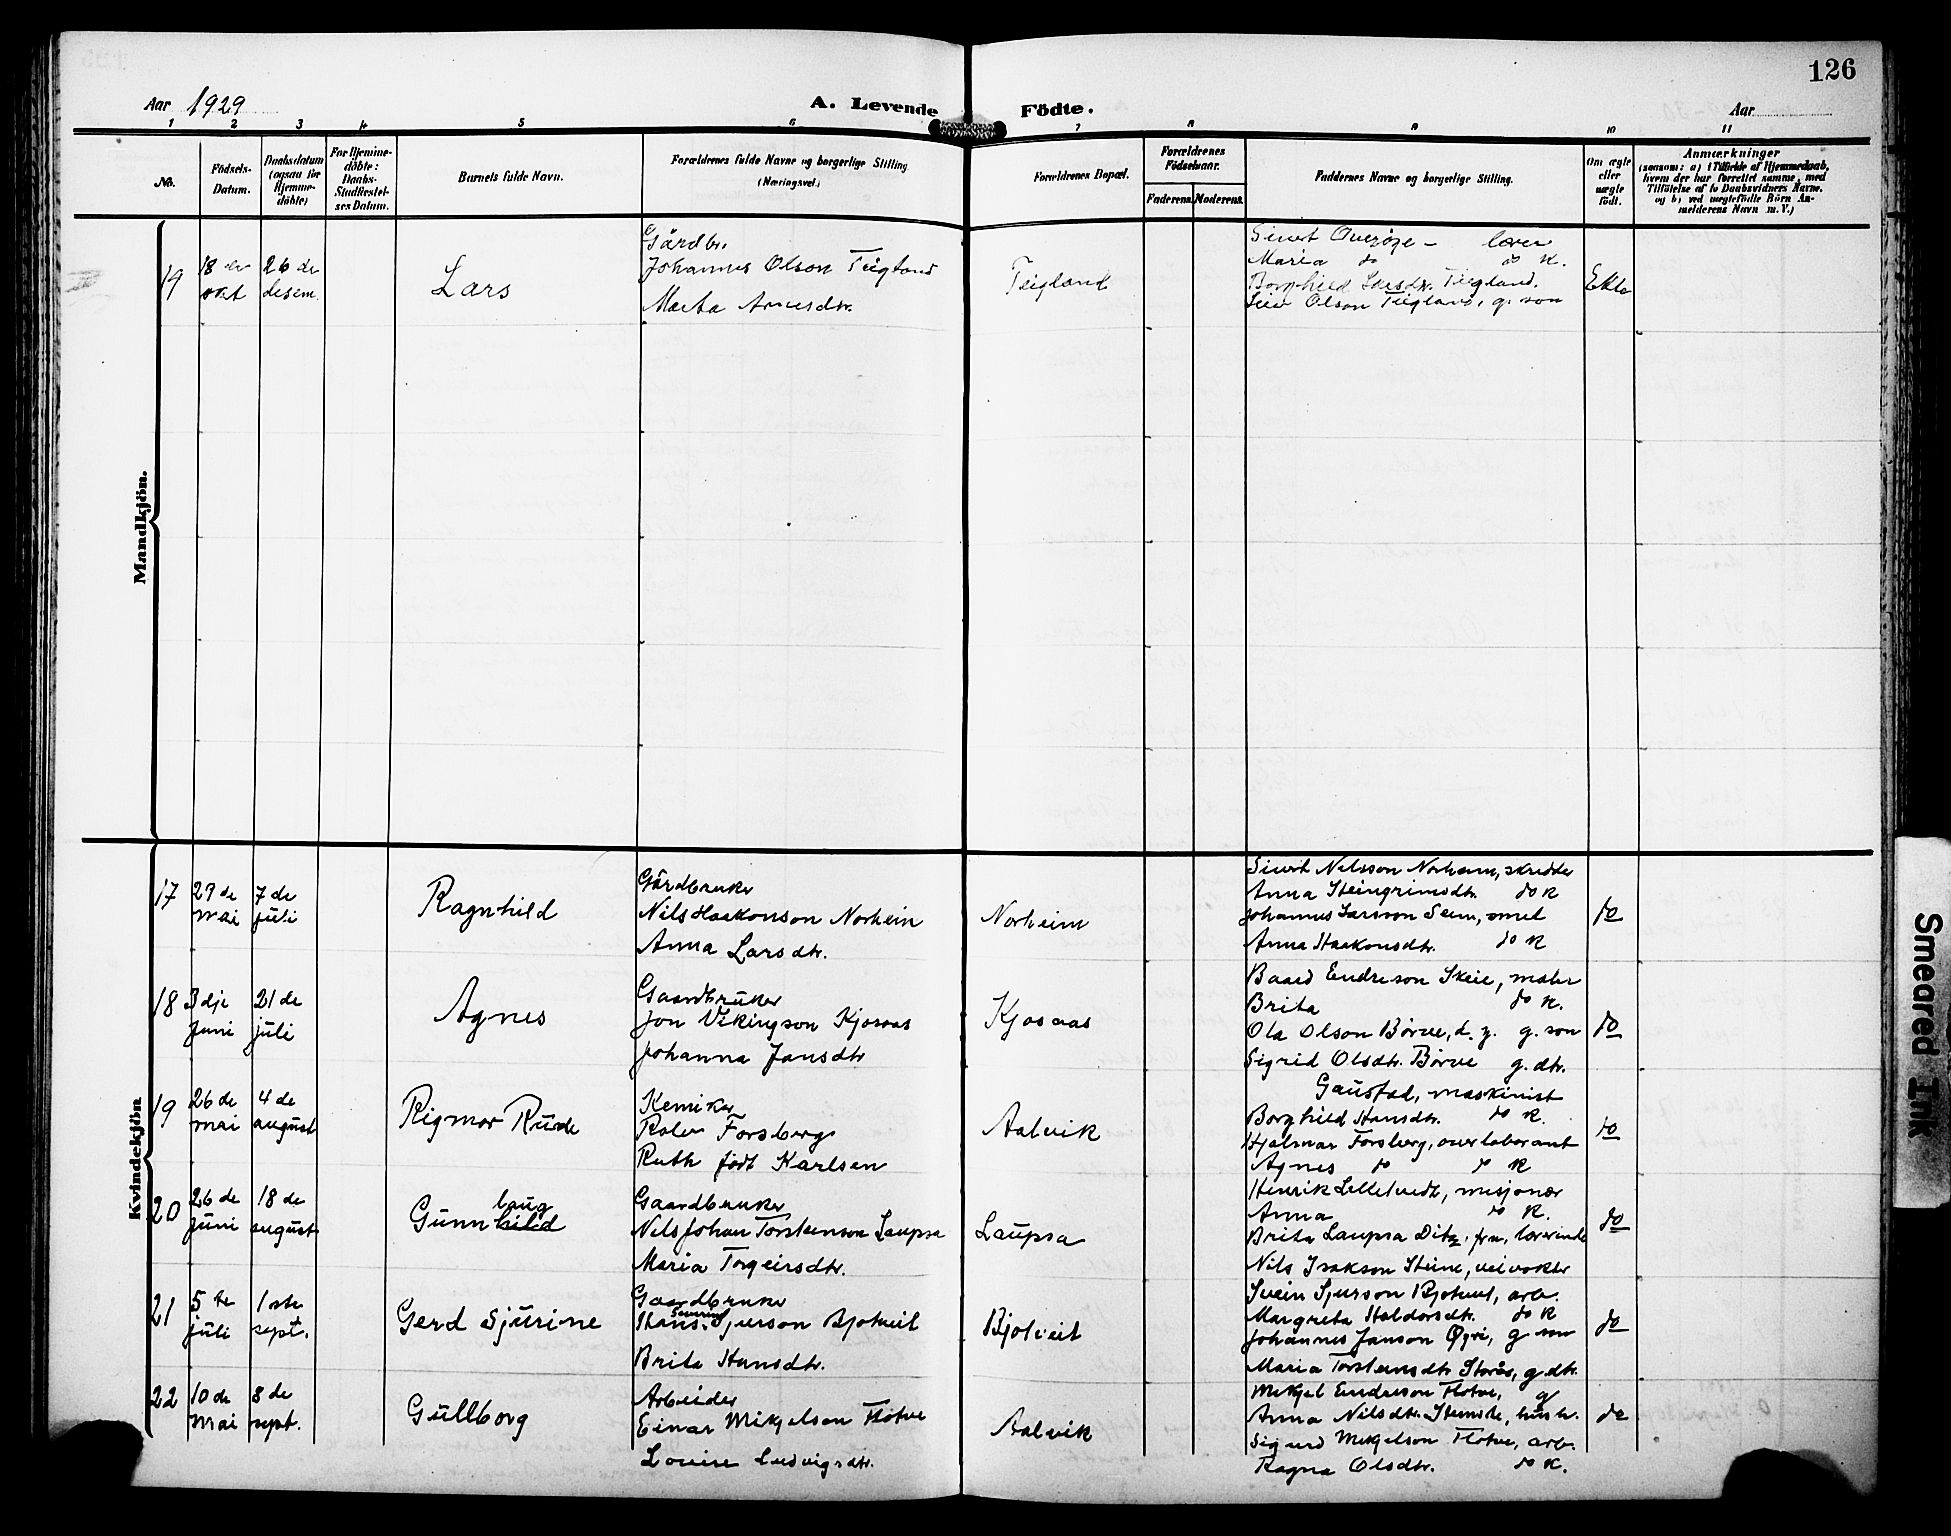 126
Aar 1929
A. Levende Födte.
Aar
1 2 3 4 5 6 7 8 9 10 11
No.
Födsels-Datum.
Daabsdatum (ogsaa for Hjemme-döbte)
For Hjemme-döbte: Daabs-Stadfæstel-ses Datum.
Barnets fulde Navn.
Forældrenes fulde Navne og borgerlige Stilling
(Næringsvei.)
Forældrenes Bopæl.
Forældrenes Födselsaar.
Faderens. Moderens.
Faddernes Navne og borgerlige Stilling.
Om ægte eller uægte födt.
Anmærkninger
(saasom: a) i Tilfælde af Hjemmedaab,
hvem der har forrettet samme, med
Tilföielse af to Daabsvidners Navne.
og b) ved uægtefödte Börn An-
melderens Navn m. V.)
Mandkjön.
19
18 de okt
26 de desem.
Lars
Gårdbr.
Johannes Olson Teigland
Marta Arnesdtr.
Teigland
Sivert
Maria do do k.
Borghild Larsdtr. Teigland.
Olson Teigland, g. son
Ekte
Kvindekjön
17
29 de mai
7 de juli
Ragnhild
Gårdbruker
Nils Haakonson Norheim
Anna Larsdtr.
Norheim
Sivert Nilsson Norheim, skredder
Anna Steingrimsdtr. do k
Johannes Larsson Seim, smed
Anna Haakonsdtr. do k
do
18
3dje juni
21 de juli
Agnes
Gaardbruker
Jon Vikingson Kjosaas
Johanna Jansdtr
Kjosaas
Baard Endreson Skeie, maler
Brita do k.
Ola Olson Børve, d. y. g. son
Sigrid Olsdtr. Børve g. dtr.
do
19
26 de mai
4 de august
Rigmor Runde
Kemiker
Rolv Forsberg
Ruth født Karlsen
Aalvik
Gaustad, maskinist
Borghild Hansdtr. do k.
Hjalmar Forsberg, overlaborant
Agnes do do k
do
20
26 de juni
18 de august
Gunnhild
laug
Gaardbruker
Nils Johan Torsteinson Laupsa
Maria Torgeirsdtr.
Laupsa
Henrik Lilletvedt, misjonær
Anna do k.
Brita Laupsa frn, lærerinde
Nils Isakson Steine, veivokter
do
21
5 te juli
1 ste sept.
Gerd Sjurine
Gaardbruker
Severin
Hans Sjurson Bjotveit
Brita Hansdtr.
Bjotveit
Svein Sjurson Bjotveit, arb.
Margreta Haldorsdtr. do k
Johannes Janson Øyri, g son
Maria Torsteinsdtr Storås, g.dtr.
do
22
10 de mai
8 de sept.
Gullborg
Arbeider
Einar Mikjelson Flotve
Louise Ludvigsdtr.
Aalvik
Mikjel Endreson Flotve, g
Anna Nilsdtr. Steinste, hush.
Sigurd Mikjelson Flotve, arb.
Ragna Olsdtr. do k.
do
Smeared Ink